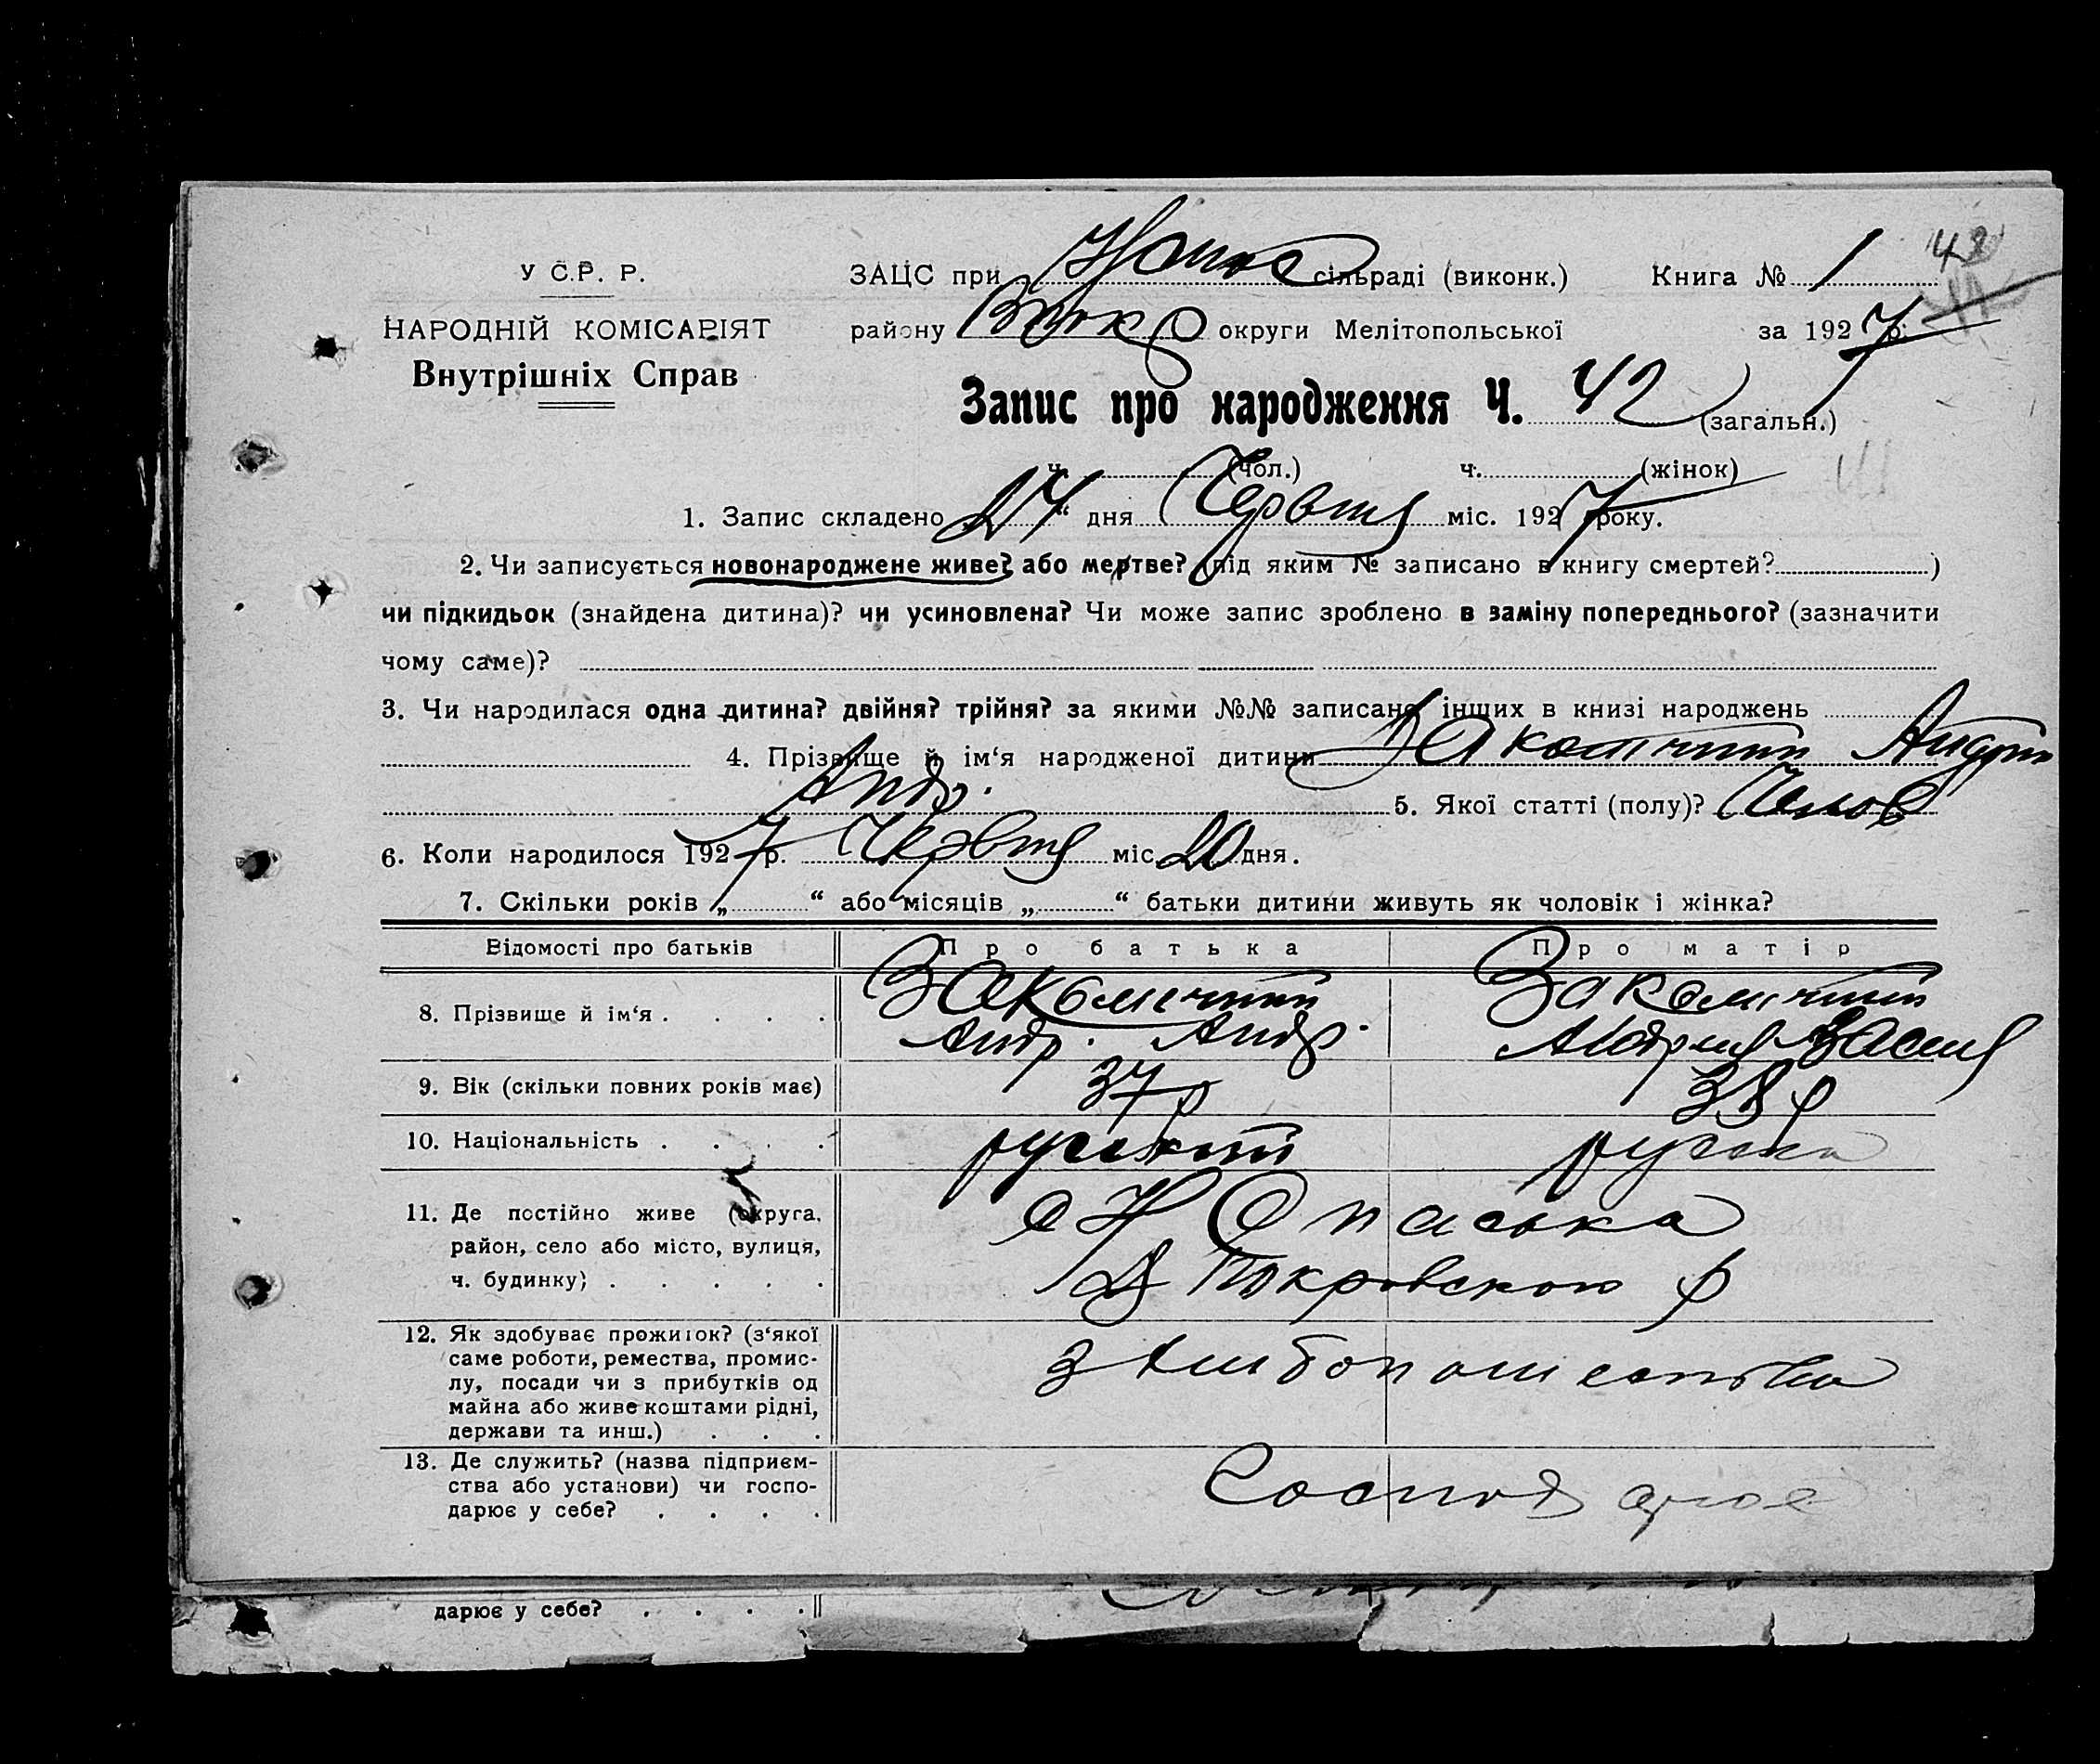 У С.Р. Р.
НАРОДНІЙ КОМІСАРІЯТ
Внутрішніх Справ
ЗАЦС при сільраді (виконк.) Книга № 1 42
району округи Мелітопольської за 1927 р.
Запис про народження Ч. 42 (загальн.)
ч. (чол.) ч. (жінок)
1. Запис складено „27“ дня Червня міс. 1927 року.
2. Чи записується новонароджене живе? або мертве? (під яким № записано в книгу смертей? )
чи підкидьок (знайдена дитина)? чи усиновлена? Чи може запис зроблено в заміну попереднього? (зазначити
чому саме)?
3. Чи народилася одна дитина? двійня? трійня? за якими №№ записано інших в книзі народжень
4. Прізвище й ім‘я народженої дитини Андрій
Андр. 5. Якої статті (полу)? Чолов
6. Коли народилося 1927 р. Червня міс. 20 дня.
7. Скільки років „ “ або місяців „ “ батьки дитини живуть як чоловік і жінка?
Відомості про батьків Про батька Про матір
8. Прізвище й ім‘я . . . .
Андр. Андр.
9. Вік (скільки повних років має) 37 р 38 р
10. Національність . . . . руський руська
11. Де постійно живе (округа, с Н Спаська
район, село або місто, вулиця,
ч. будинку) . . . . . В Покровского р
12. Як здобуває прожиток? (з‘якої
саме роботи, ремества, промис-
лу, посади чи з прибутків од
майна або живе коштами рідні,
держави та инш.) . . .
з хлібопашества
13. Де служить? (назва підприєм-
ства або установи) чи госпо-
дарює у себе? . . . .
Господарює
дарює у себе? . . . .